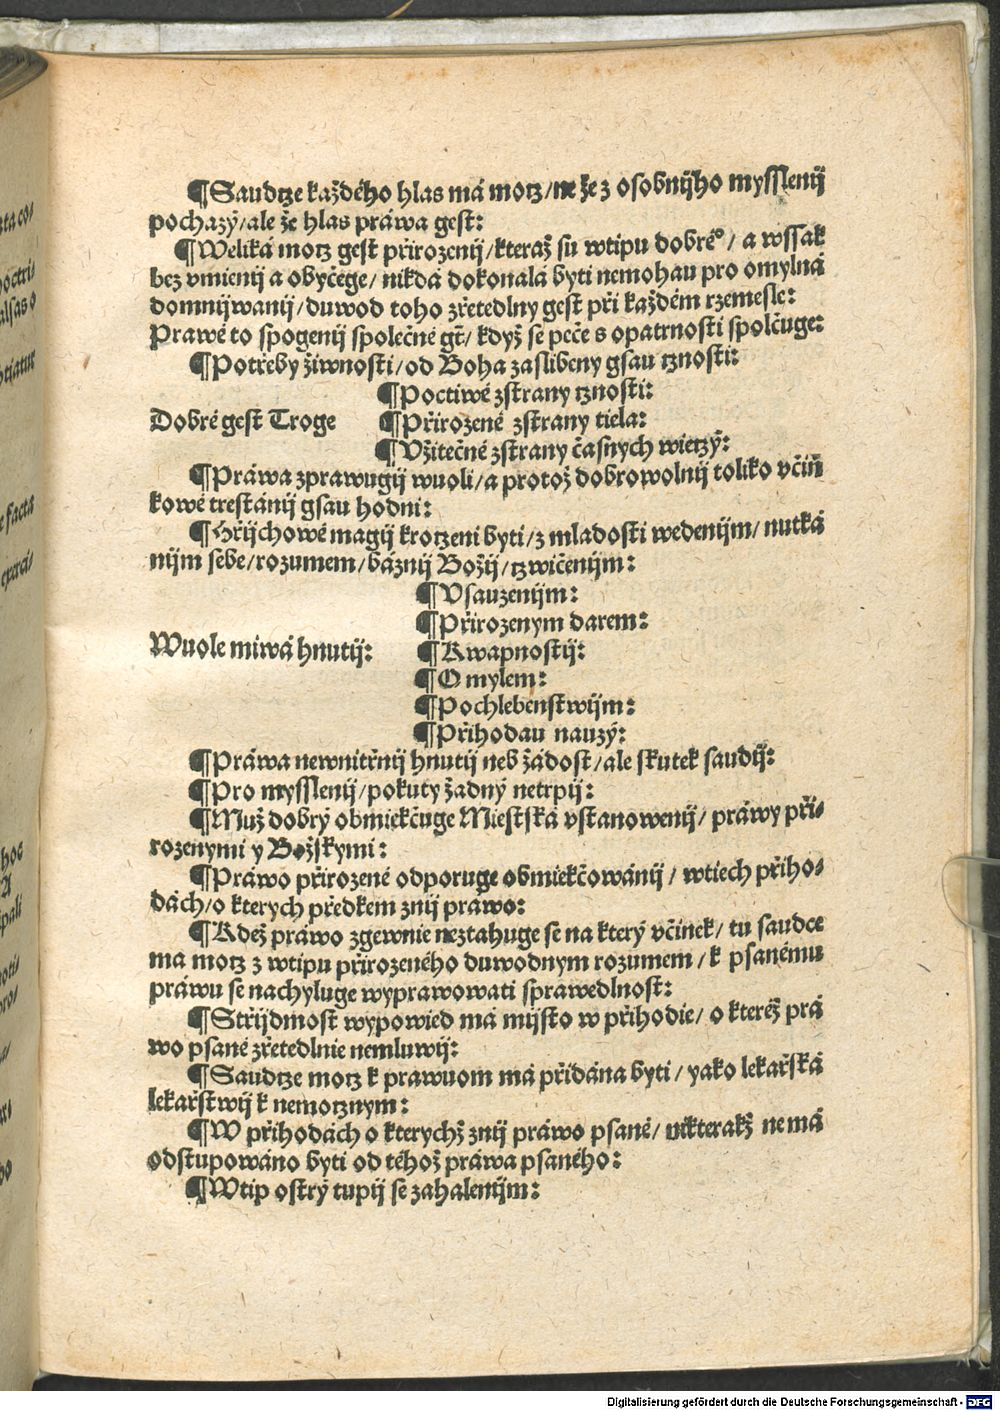 ¶Saudtze každého hlas má motz/ne že z osobnijho mysslenij
pochazý/ale že hlas práwa gest:
¶Weliká motz gest přirozenij/kteraž su wtipu dobré°/ a wssak
bez vmienij a obyčege/nikdá dokonalá byti nemohau pro omylná
domnijwanij/duwod toho zřetedlny gest při každém rzemesle:
Prawé to spogenij společné gt̄/když se péče s opatrnosti spolčuge:
¶Potřeby žiwnosti/od Boha zaslibeny gsau tznosti:
¶Poctiwé zstrany tznosti:
Dobré gest Troge ¶Přirozené zstrany tiela:
¶Vžitečné zstrany časnych wietzý:
¶Práwa zprawugij wuoli/a protož dobrowolnij toliko včiň
kowé trestánij gsau hodni:
¶Hřijchowé magij krotzeni byti/z mladosti wedenijm/nutká
nijm sebe/rozumem/báznij Božij/tzwičenijm:
¶Vsauzenijm:
¶Přirozenym darem:
Wuole miwá hnutij: ¶Kwapnostij:
¶Omylem:
¶Pochlebenstwijm:
¶Přihodau nauzý:
¶Práwa newnitřnij hnutij neb žádost/ale skutek saudij:
¶Pro mysslenij/pokuty žadný netrpij:
¶Muž dobrý obmiekčuge Miestská vstanowenij/ práwy při⸗
rozenymi y Božskymi:
¶Práwo přirozené odporuge obmiekčowánij/ wtiech přiho⸗
dách/o kterych předkem znij práwo:
¶Kdež práwo zgewnie neztahuge se na který včinek/ tu saudce
ma motz z wtipu přirozeného duwodnym rozumem/k psanému
práwu se nachyluge wyprawowati sprawedlnost:
¶Střijdmost wypowied má mijsto w přihodie/ o kteréž prá
wo psané zřetedlnie nemluwij:
¶Saudtze motz k prawuom má přidána byti/ yako lekařská
lekařstwij k nemotznym:
¶W přihodách o kterychž znij práwo psané/ nikterakž nemá
odstupowáno byti od téhož práwa psaného:
¶Wtip ostrý tupij se zahalenijm:
zta co⸗
Digitalisierung gefördert durch die Deutsche Forschungsgemeinschaft - DFG